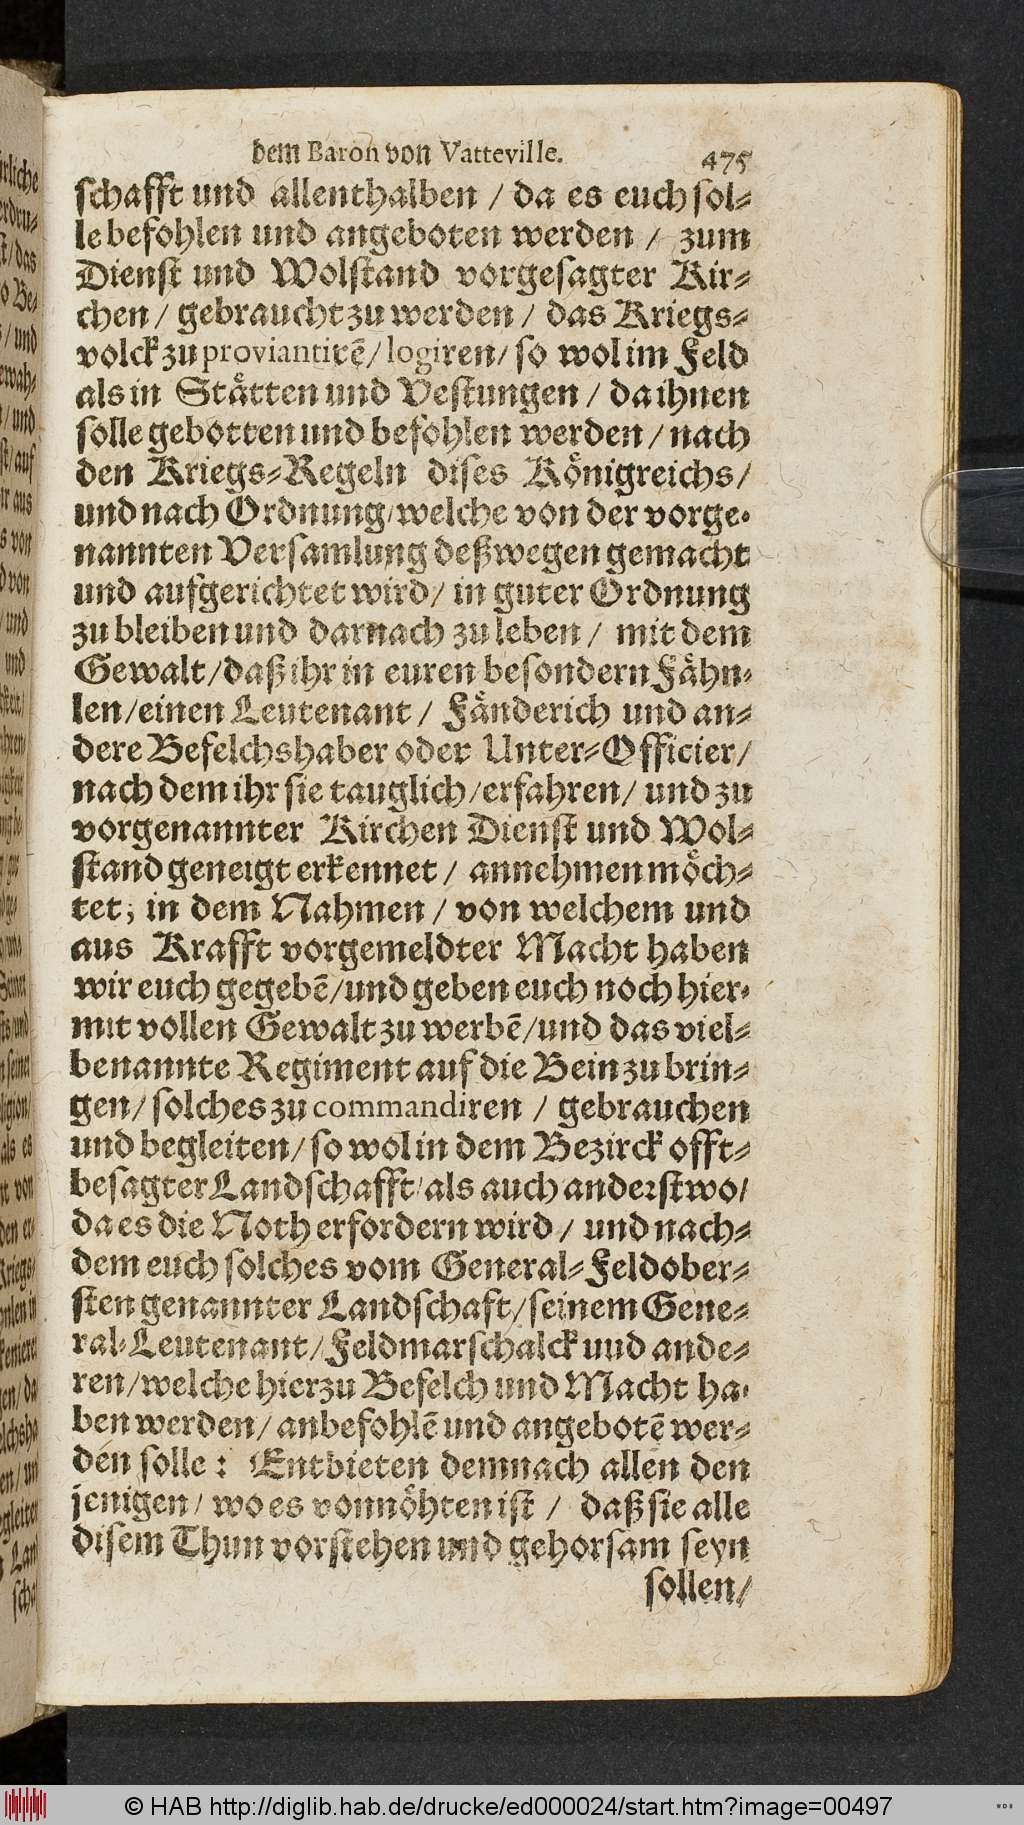 dem Baron von Vatteville. 475
schafft und allenthalben / da es euch sol-
le befohlen und angeboten werden / zum
Dienst und Wolstand vorgesagter Kir-
chen / gebraucht zu werden / das Kriegs-
volck zu proviantirē / logiren / so wol im Feld
als in Ståtten und Vestungen / da ihnen
solle gebotten und befohlen werden / nach
den Kriegs-Regeln dises Kȯnigreichs /
und nach Ordnung / welche von der vorge-
nannten Versamlung deßwegen gemacht
und aufgerichtet wird / in guter Ordnung
zu bleiben und darnach zu leben / mit dem
Gewalt / daß ihr in euren besondern Fåhn-
len / einen Leutenant / Fånderich und an-
dere Befelchshaber oder Unter-Officier /
nach dem ihr sie tauglich / erfahren / und zu
vorgenannter Kirchen Dienst und Wol-
stand geneigt erkennet / annehmen mȯch-
tet; in dem Nahmen / von welchem und
aus Krafft vorgemeldter Macht haben
wir euch gegebē / und geben euch noch hier-
mit vollen Gewalt zu werbē / und das viel-
benannte Regiment auf die Bein zu brin-
gen / solches zu commandiren / gebrauchen
und begleiten / so wol in dem Bezirck offt-
besagter Landschafft / als auch anderstwo /
da es die Noth erfordern wird / und nach-
dem euch solches vom General-Feldober-
sten genannter Landschaft / seinem Gene-
ral-Leutenant / Feldmarschalck uud ande-
ren / welche hierzu Befelch und Macht ha-
ben werden / anbefohlē und angebotē wer-
den solle : Entbieten demnach allen den
jenigen / wo es vonnȯhten ist / daß sie alle
disem Thun vorstehen und gehorsam seyn
sollen /
© HAB http://diglib.hab.de/drucke/ed000024/start.htm?image=00497